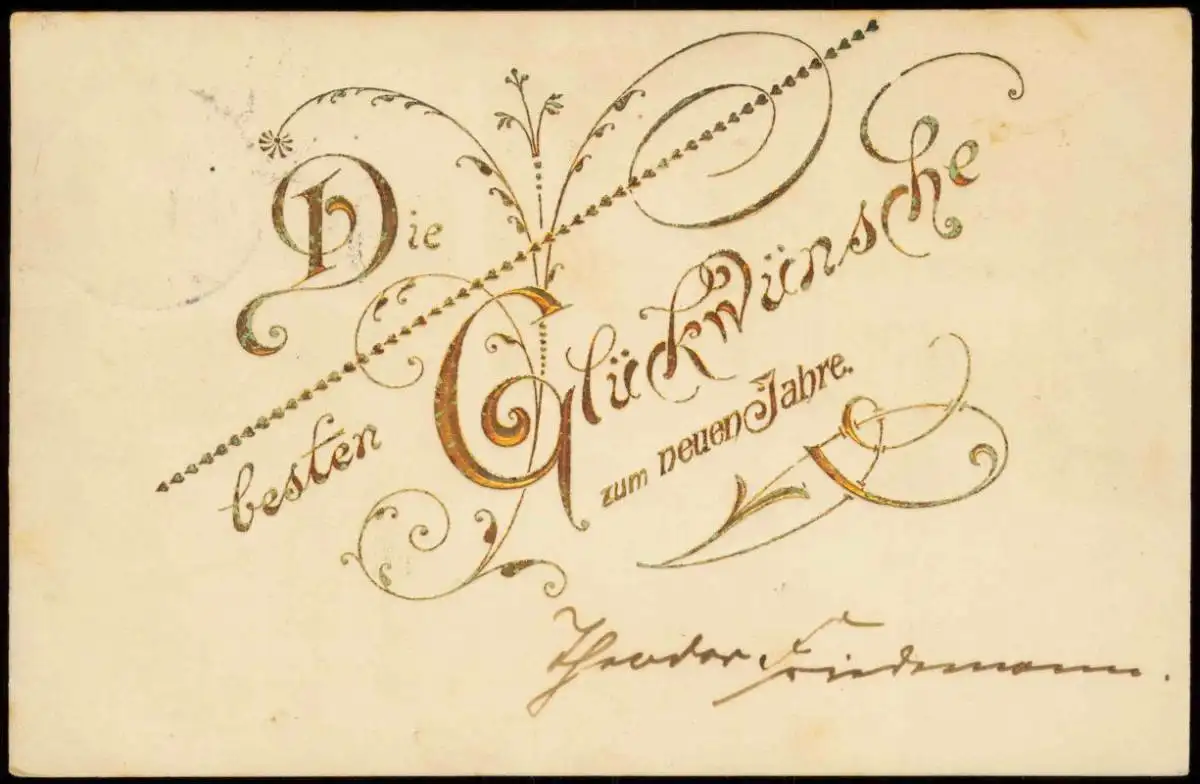 Die
besten Glückwünsche
zum neuen Jahre.
Theodor Friedemann.